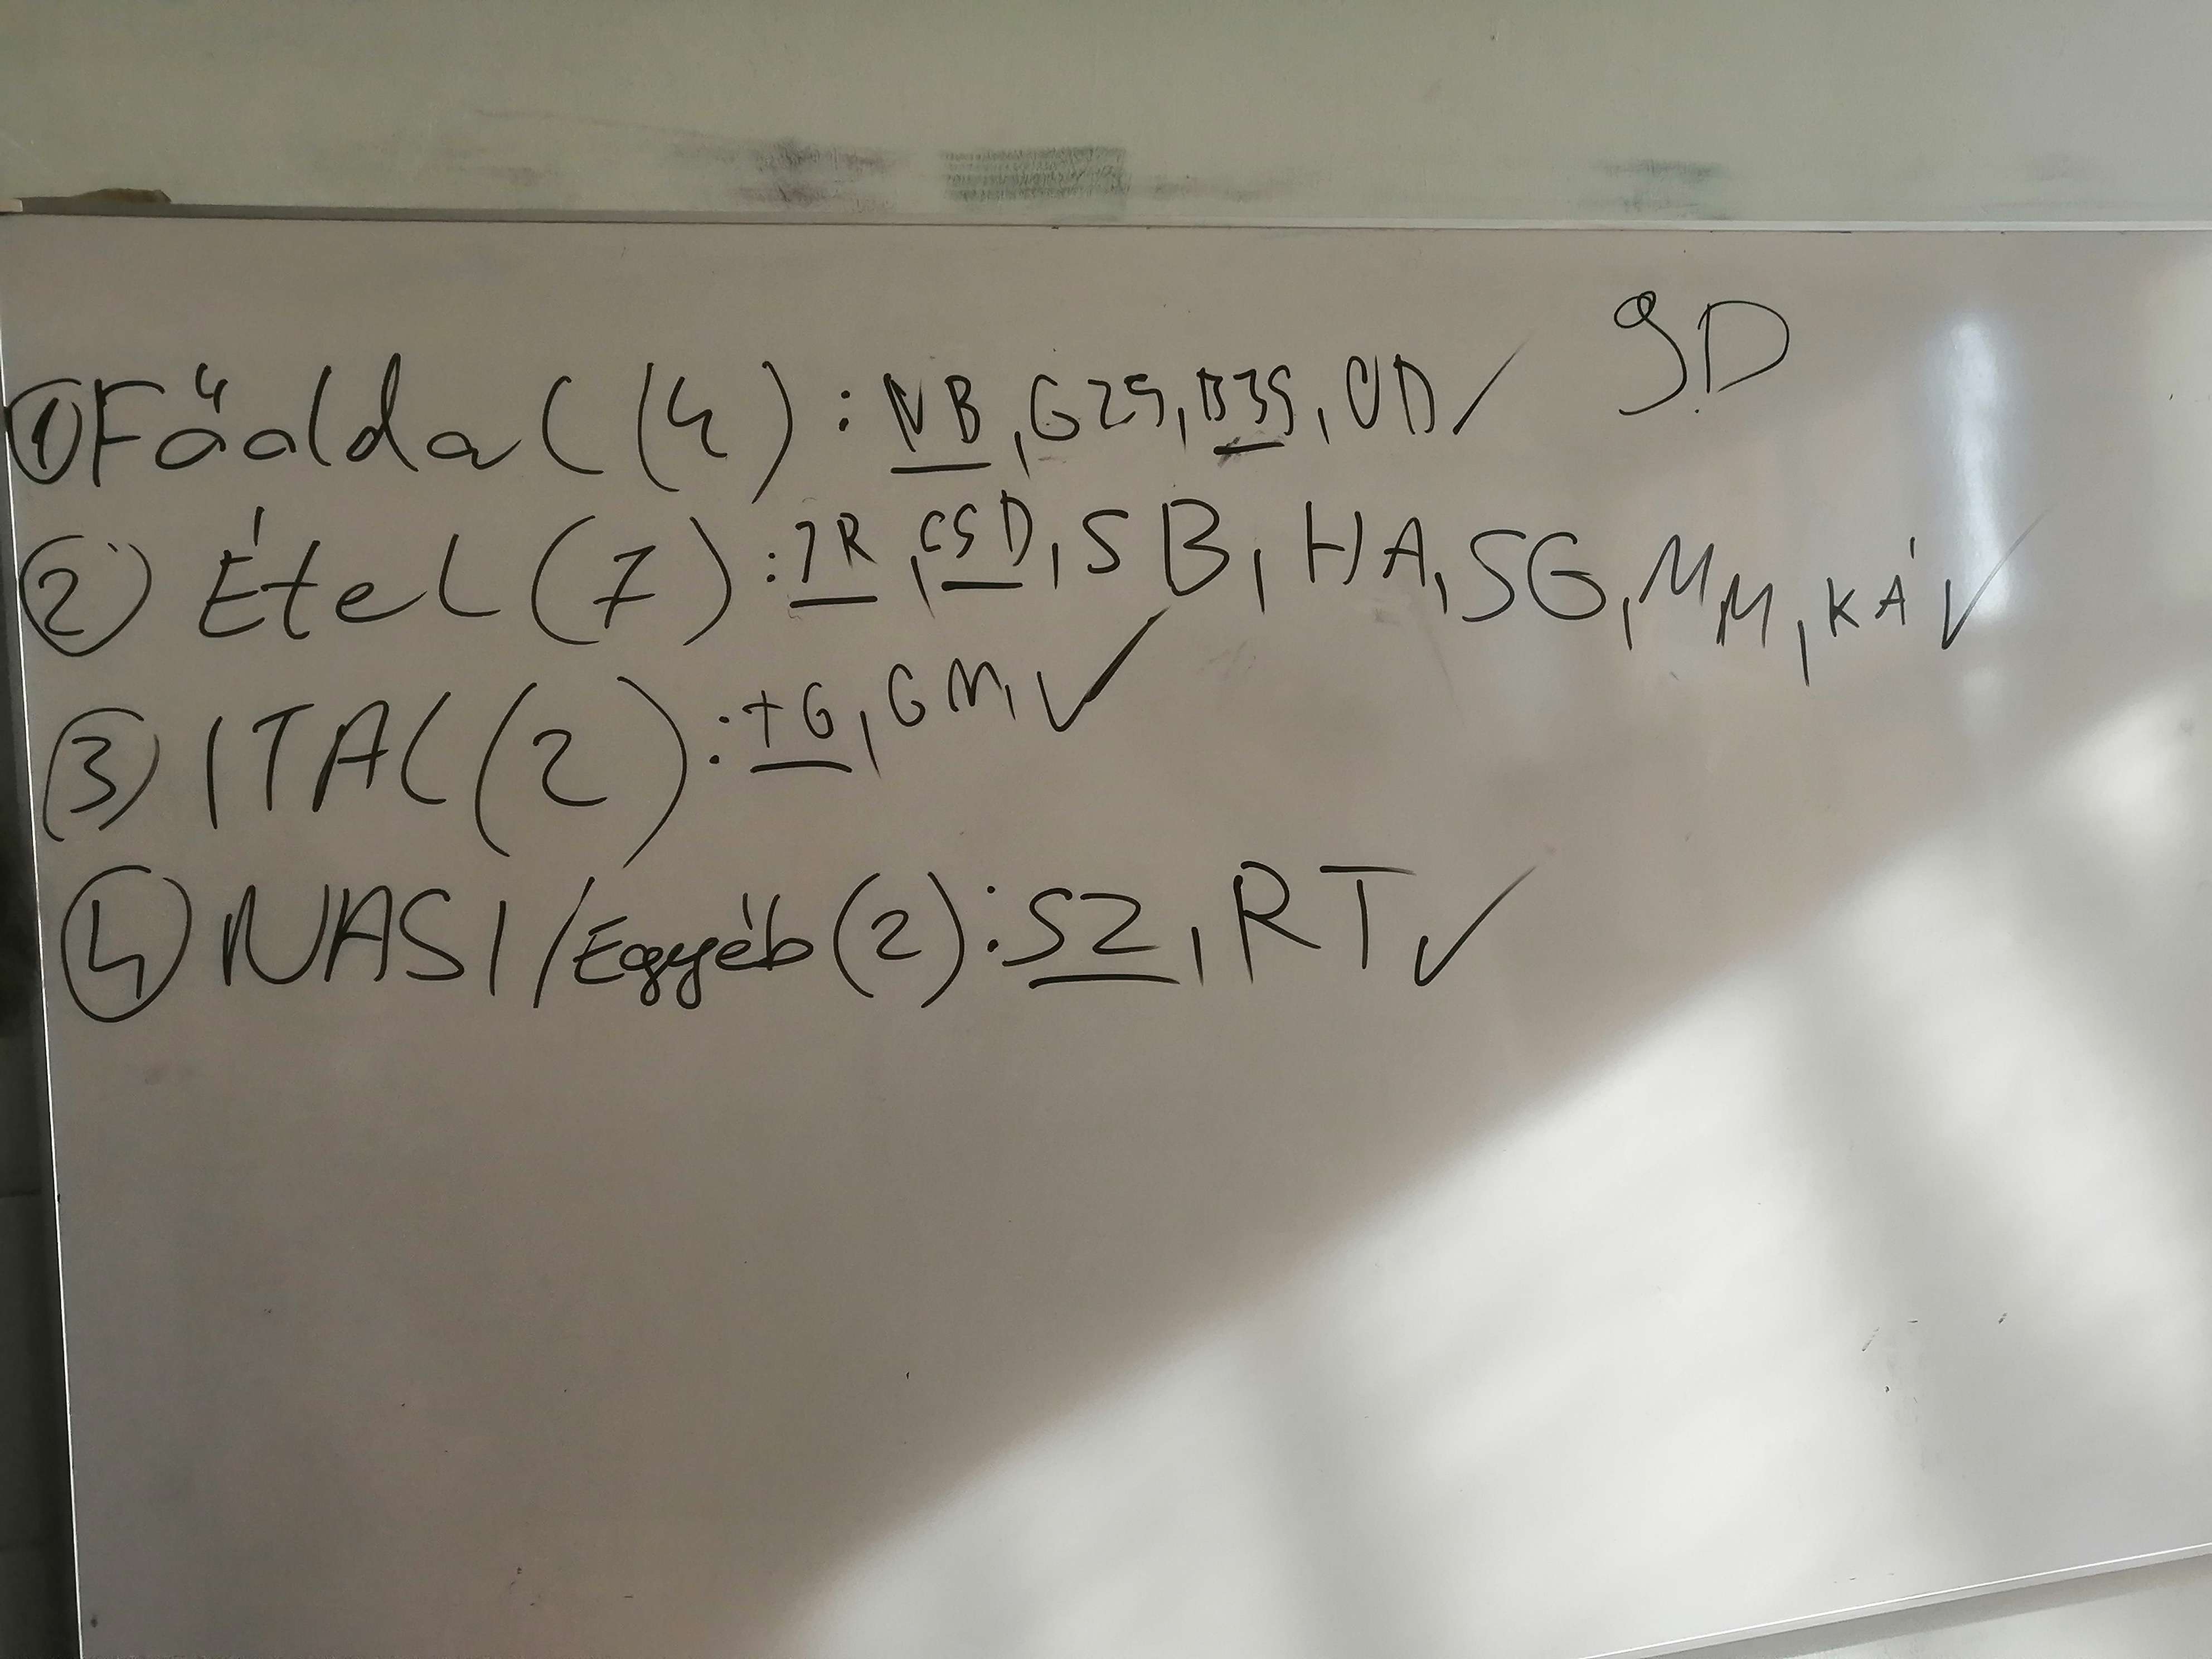 9.D
① Főoldal (4): NB, GZS, BZS, UD ✓
② Étel (7): JR, CSD, SB, HA, SG, MM, KÁ ✓
③ ITAL (2): TG, GM, ✓
④ NASI/Egyéb (2): SZ, RT ✓